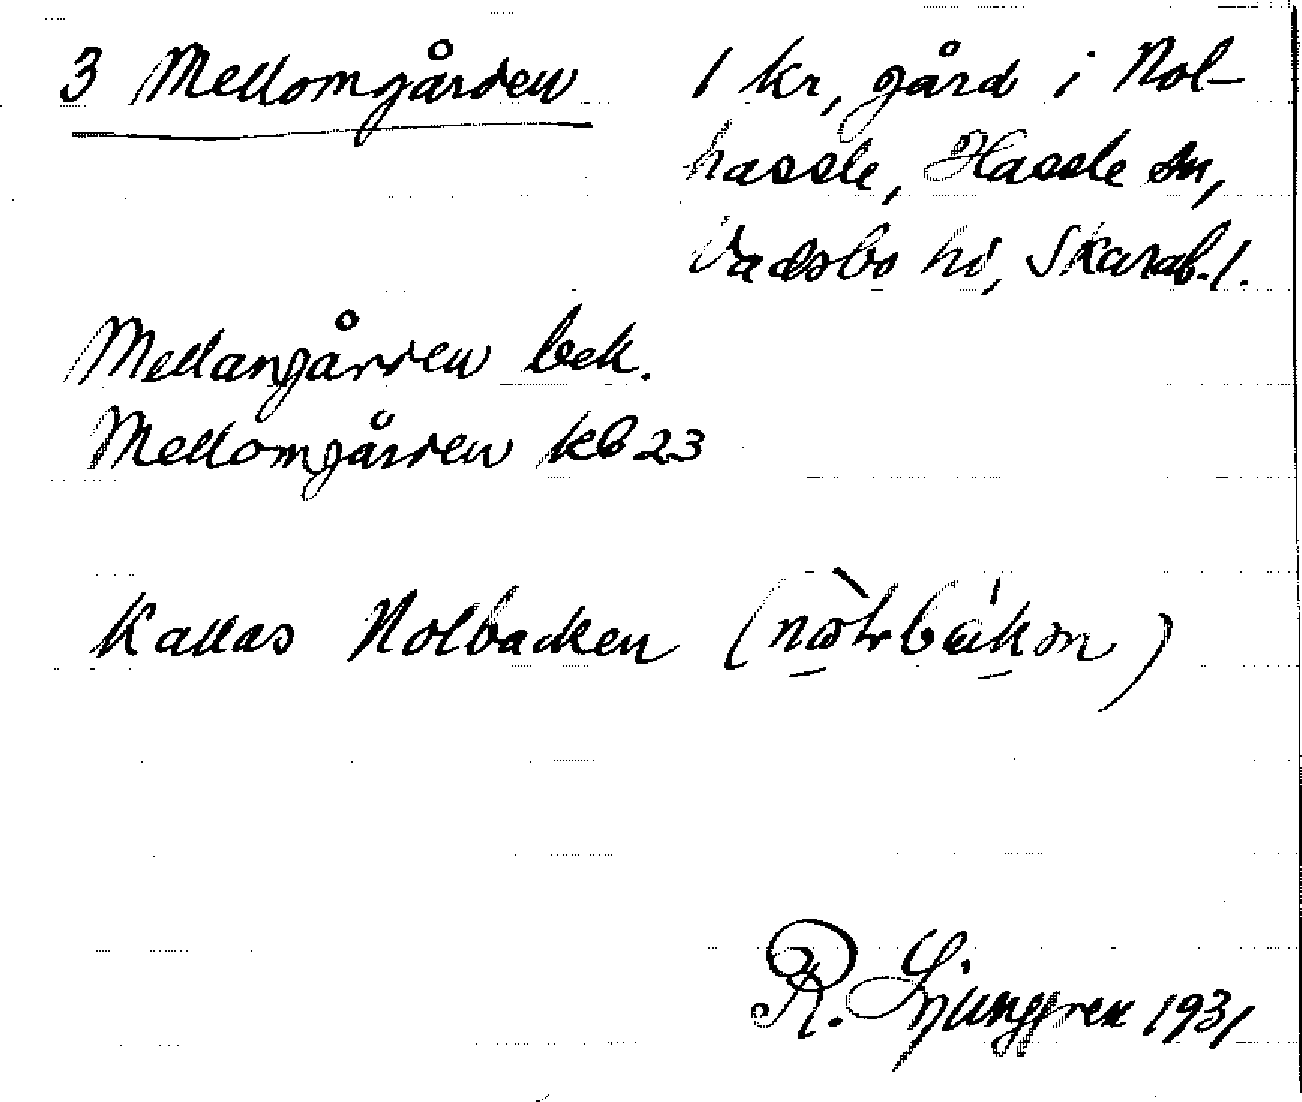 3 Mellomgården 1 kr, gård i Nol-
hassle, Hassle sn,
Vadsbo hd, Skarab. l.
Mellangården bek.
Mellomgården kb 23
Kallas Nolbacken
R. Ljunggren 1931